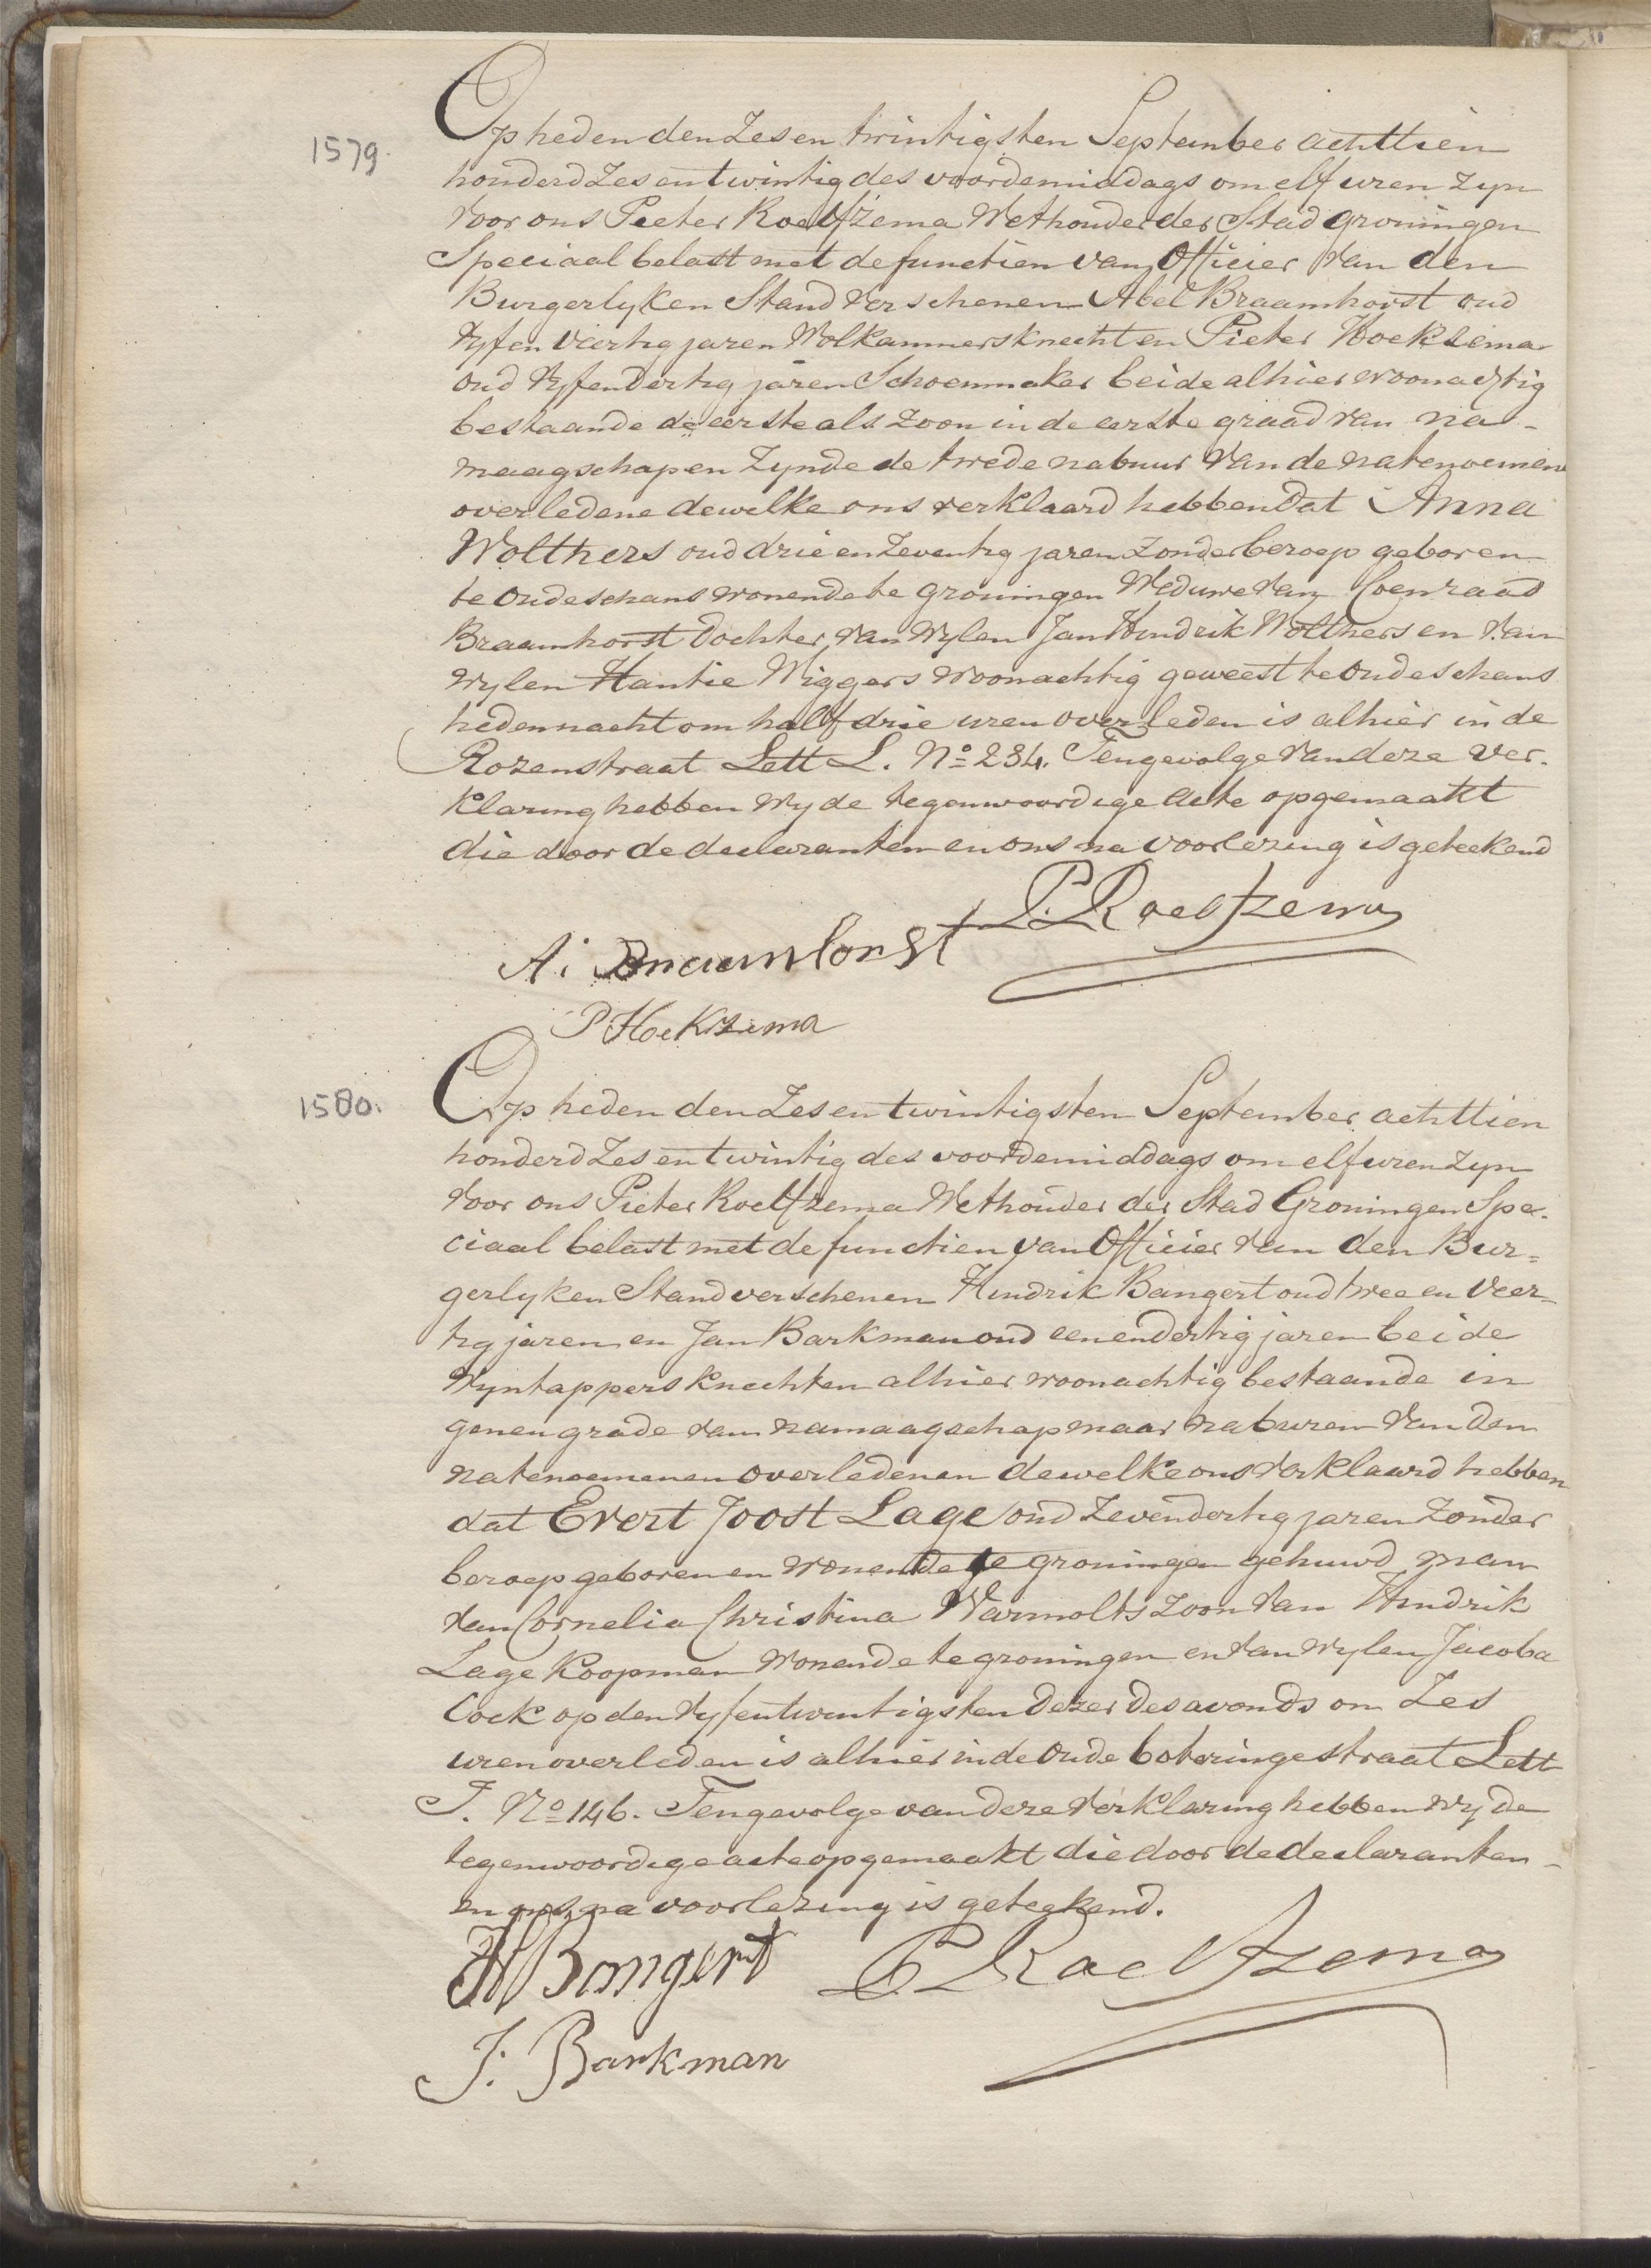 1579.
Op heden den Zes en twintigsten September achttien
honderd Zes en twintig des voordemiddags om elf uren zyn
voor ons Pieter Roelfzema Wethouder der Stad Groningen
Speciaal belast met de functien van Officier van den
Burgerlyken Stand verschenen Abel Braamhorst oud
vyf en veertig jaren Wolkammersknecht en Pieter Hoeksema
oud vyfendertig jaren Schoenmaker beide alhier woonachtig
bestaande de eerste als zoon in de eerste graad van na-
maagschap en zynde de twede nabuur van de natenoemene
overledene dewelke ons verklaard hebben dat Anna
Wolthers oud drie en Zeventig jaren zonder beroep geboren
te Oudeschans wonende te Groningen Weduwe van Coenraad
Braamhorst Dochter van wylen Jan Hindrik Wolthers en van
wylen Hantie Wiggers woonachtig geweest te Oudeschans
heden nacht om half drie uren overleden is alhier in de
Rozenstraat Lett L. No 234. Tengevolge van deze ver.
klaring hebben wy de tegenwoordige acte opgemaakt
die door de declaranten en ons na voorlezing is geteekend
P. Roelfzema
A: Braamhorst
P Hoekzema
1580.
Op heden den Zes en twintigsten September achttien
honderd Zes en twintig des voordemiddags om elf uren zyn
voor ons Pieter Roelfzema Wethouder der Stad Groningen Spe-
ciaal belast met de functien van Officier van den Bur=
gerlyken Stand verschenen Hindrik Bangert oud twee en veer=
tig jaren en Jan Barkman oud eenendertig jaren beide
Wyntappersknechten alhier woonachtig bestaande in
genen grade van namaagschap maar naburen van den
natenoemenen overledenen dewelke ons verklaard hebben
dat Evert Joost Lage oud Zevendertig jaren zonder
beroep geboren en wonende te Groningen gehuwd man
van Cornelia Christina Warmolts zoon van Hindrik
Lage Koopman wonende te Groningen en van wylen Jacoba
Cock op den vyfentwintigsten dezer des avonds om Zes
uren overleden is alhier in de Oude boteringestraat Lett
J. No 146. Tengevolge van deze verklaring hebben wy de
tegenwoordige acte opgemaakt die door de declaranten -
en ons na voorlezing is geteekend.
H Bangert P Roelfzema
J: Barkman